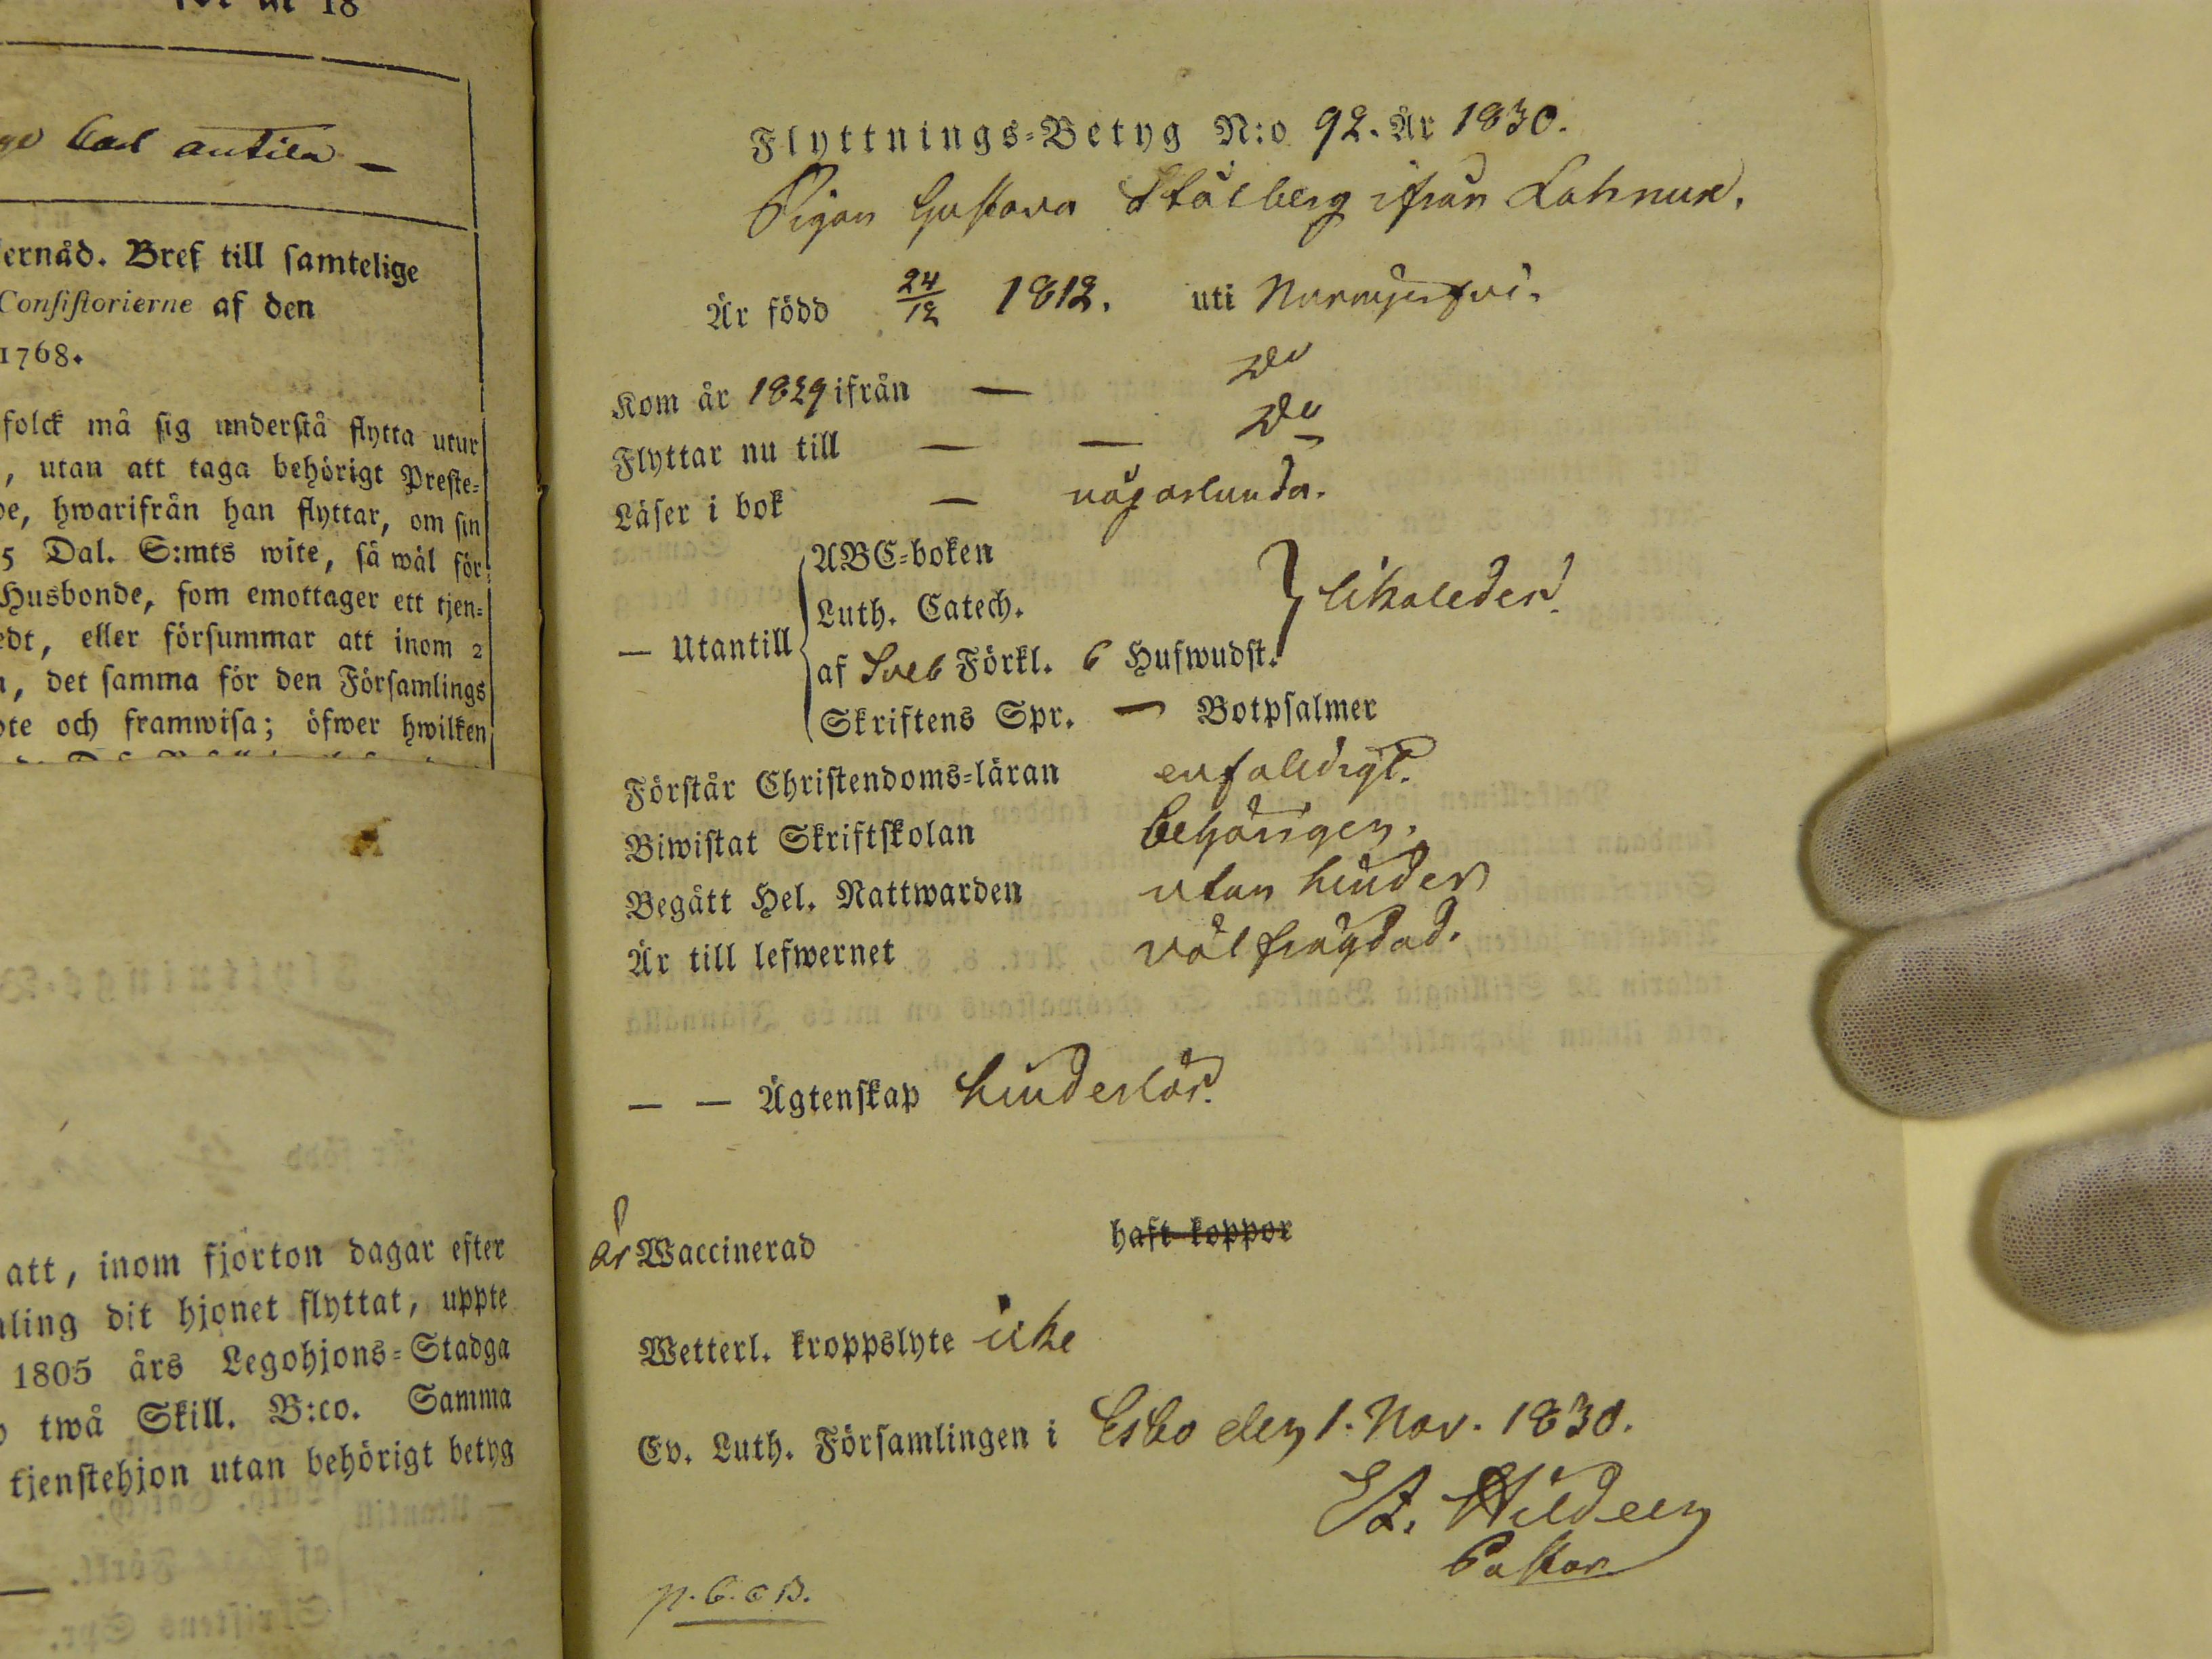 för år 18
Carl Antila —
ernåd. Bref till samtelige
Consistorierne af den
1768.
folck må sig understå flytta utur
, utan att taga behörigt Preste=
oe, hwarifrån han flyttar, om sin
5 Dal. S:mts wite, så wäl för=
Husbonde, som emottager ett tjen=
edt, eller försummar att inom 2
, det samma för den Församlings
ote och framwisa; öfwer hwilken
att, inom fjorton dagar efter
ling dit hjonet flyttat, uppte
1805 års Legohjons=Stadga
twå Skill. B:co. Samma
tjenstehjon utan behörigt betyg
Flyttnings=Betyg N:o 92. År 1830.
Pigan Gustava Stålberg ifrån Lahnus.
Är född 24/12 1812. uti Nurmijerfvi.
Kom år 1829 ifrån — Do
Flyttar nu till — — Do
Läser i bok — någorlunda.
— Utantill { ABC=boken
Luth. Catech. } likaledes.
af Sveb Förkl. 6 Hufwudst.
Skriftens Spr. — Botpsalmer
Förstår Christendoms=läran enfaldigt.
Biwistat Skriftskolan behörigen.
Begått Hel. Nattwarden utan hinder
Är till lefwernet välfrägdad.
— — Ägtenskap hinderlös.
är Waccinerad haft koppor
Wetterl. kroppslyte icke
Ev. Luth. Församlingen i Esbo den 1. Nov. 1830.
Hildeen
Pastor